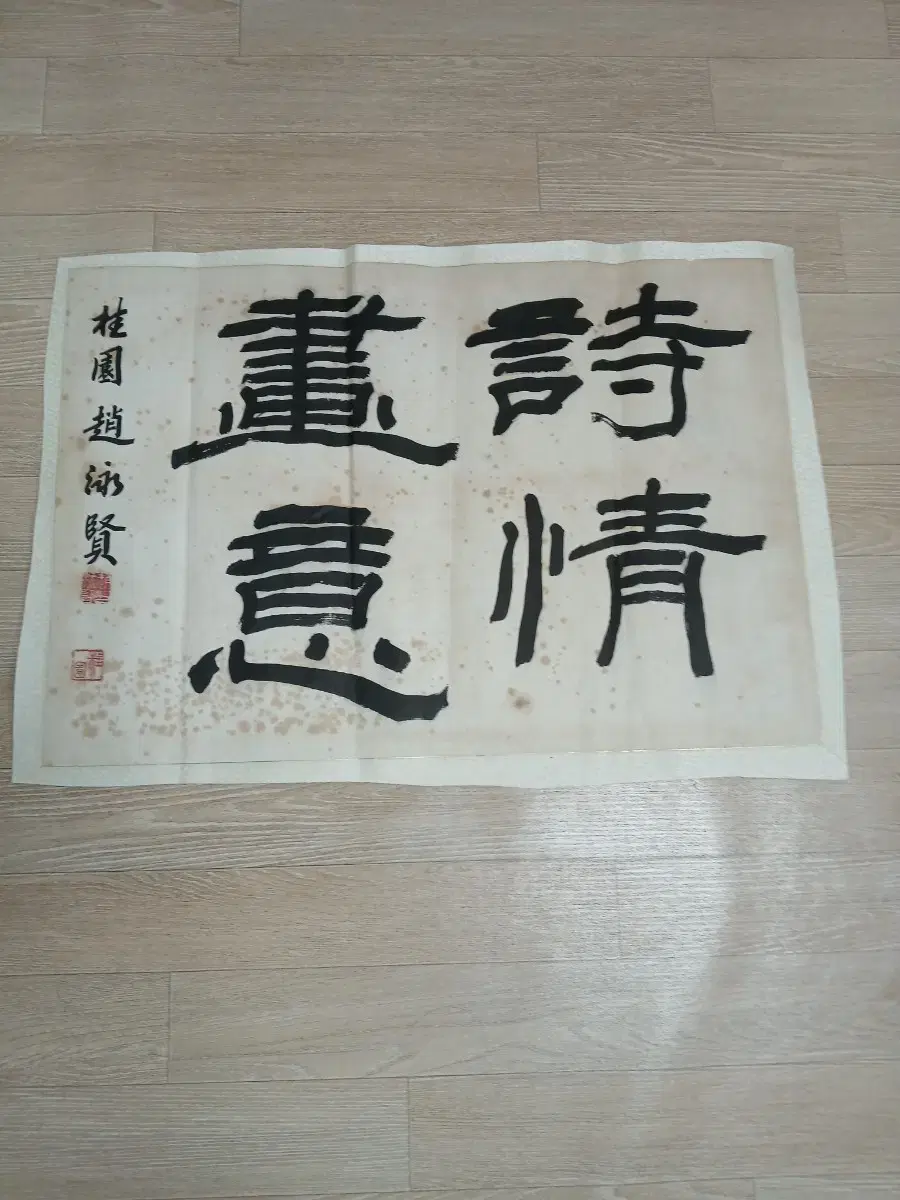 詩情
畫意
桂園趙泳賢